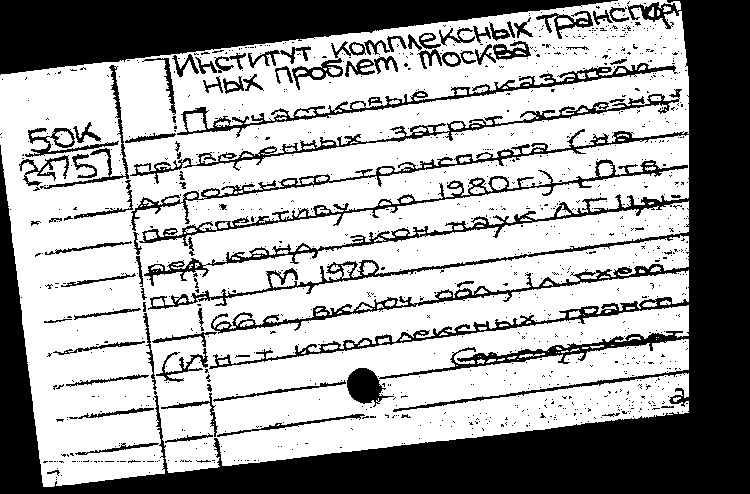 Институт комплексных транспорт
ных проблем. Москва.
50К
24757
Поучастковые показатели
приведенных затрат железно-
дорожного транспорта (на
перспективу до 1980 г.) [Отв.
ред. канд. экон. наук Л.Г. Цы-
пин]. М., 1970.
66 с., включ. обл.; 1 л. схем
(Ин-т комплексных трансп.
См. след. карт.